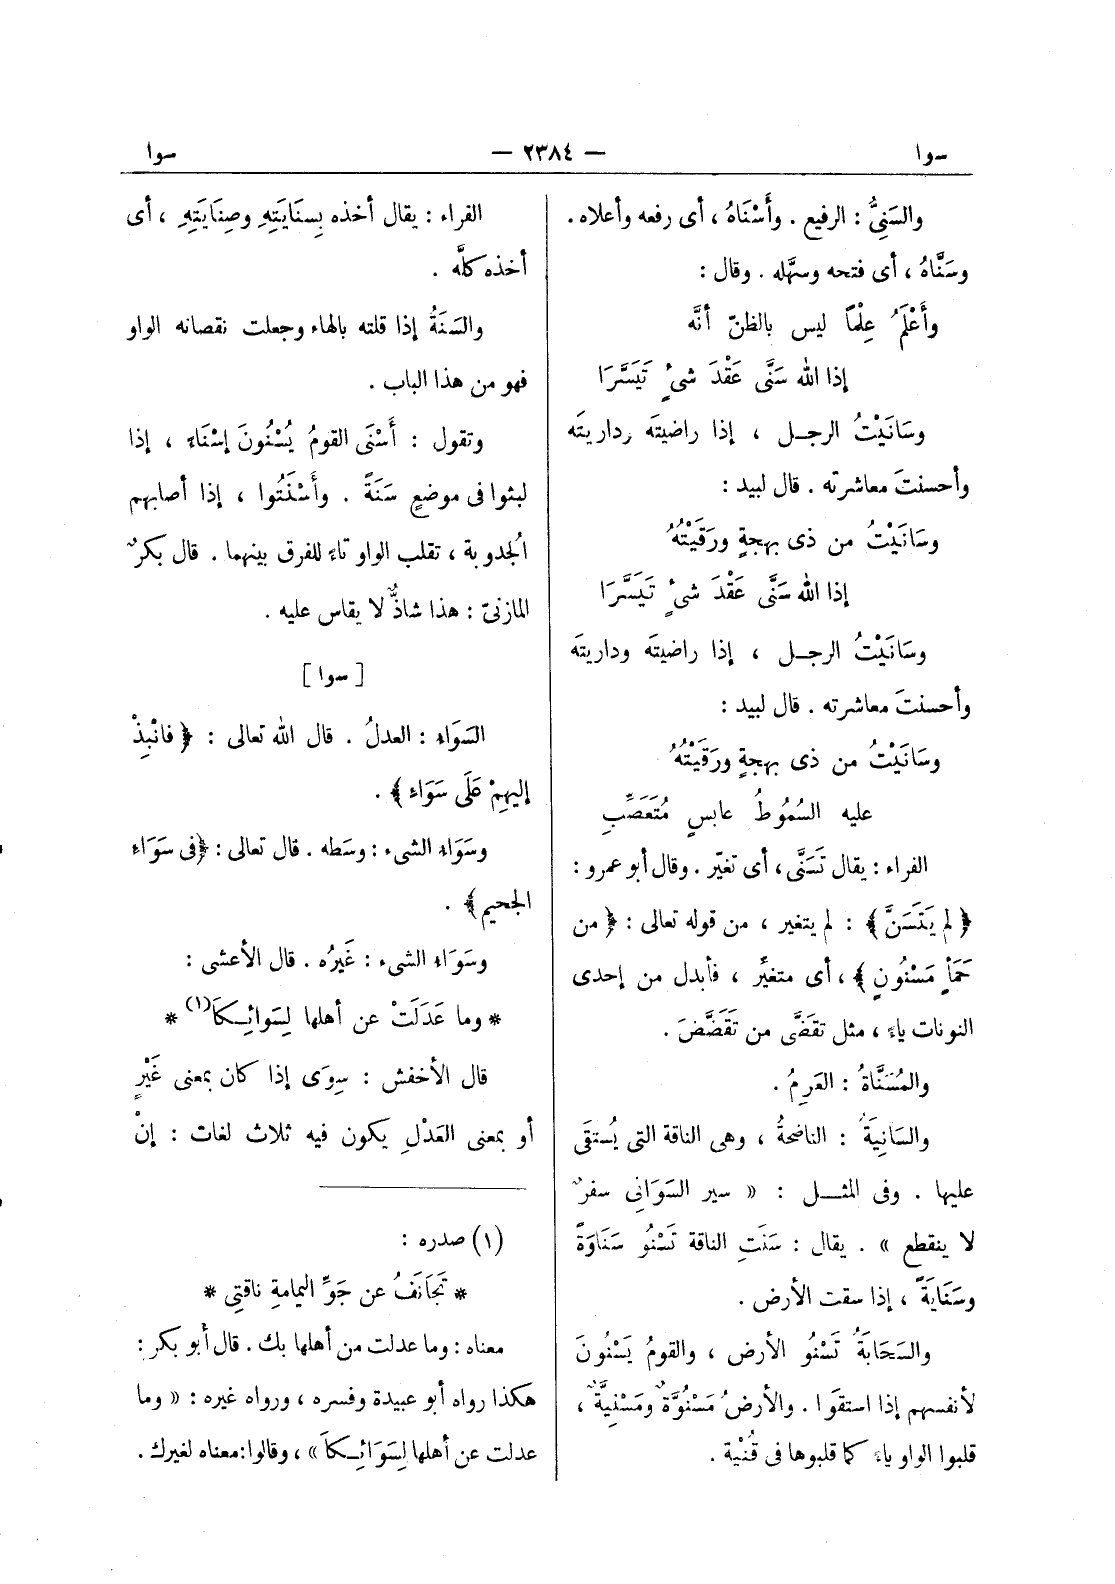 سوا — ٢٣٨٤ — سوا
والسَنِيُّ : الرفيع . وأَسْنَاهُ ، أى رفعه وأعلاه .
وسَنَّاهُ ، أى فتحه وسهَّله . وقال :
وأَعْلَمُ عِلْماً ليس بالظنّ أنَّه
إذا الله سَنَّى عَقْدَ شىءٍ تَيَسَّرَا
وسَانَيْتُ الرجــل ، إذا راضيتَه وداريتَه
وأحسنتَ معاشرته . قال لبيد :
وسَانَيْتُ من ذى بهجةٍ ورَقَيْتُهُ
إذا الله سَنَّى عَقْدَ شىءٍ تَيَسَّرَا
وسَانَيْتُ الرجــل ، إذا راضيتَه وداريتَه
وأحسنتَ معاشرته . قال لبيد :
وسَانَيْتُ من ذى بهجةٍ ورَقَيْتُهُ
عليه السُمُوطُ عابسٍ مُتَعَصِّبِ
الفراء : يقال تَسَنَّى ، أى تغيّر . وقال أبو عمرو :
﴿ لم يَتَسَنَّ ﴾ : لم يتغير ، من قوله تعالى : ﴿ من
حَمَأٍ مَسْنُونٍ ﴾ ، أى متغيِّر ، فأبدل من إحدى
النونات ياء ، مثل تقَضَّى من تَقَضَّضَ .
والمُسَنَّاةُ : العَرِمُ .
والسَانِيَةُ : الناضحةُ ، وهى الناقة التى يُستقَى
عليها . وفى المثــل : « سير السَوَانِى سفرٌ
لا ينقطع » . يقال : سَنَتِ الناقة تَسْنُو سَنَاوَةً
وسَنَايَةً ، إذا سقت الأرض .
والسَحَابَةُ تَسْنُو الأرض ، والقومُ يَسْنُونَ
لأنفسهم إذا استقَوا . والأرضُ مَسْنُوَّةٌ ومَسْنِيَّةٌ ،
قلبوا الواو ياء كما قلبوها فى قُنْيَة .
الفراء : يقال أخذه بِسِنَايَتِهِ وصِنَايَتِهِ ، أى
أخذه كلَّه .
والسَنَةُ إذا قلته بالهاء وجعلت نقصانه الواو
فهو من هذا الباب .
وتقول : أَسْنَى القومُ يُسْنُونَ إسْنَاءً ، إذا
لبثوا فى موضعٍ سَنَةً . وأَسْنَتُوا ، إذا أصابهم
الجُدوبة ، تقلب الواو تاءً للفرق بينهما . قال بكرٌ
المازنىّ : هذا شاذٌّ لا يقاس عليه .
[ سوا ]
السَوَاء : العدلُ . قال الله تعالى : ﴿ فانْبِذْ
إليهِمْ عَلَى سَوَاء ﴾ .
وسَوَاء الشىء : وسَطه . قال تعالى : ﴿ فى سَوَاءِ
الجحيم ﴾ .
وسَوَاء الشىء : غَيرُه . قال الأعشى :
* وما عَدَلَتْ عن أهلها لِسَوائِــكَا(١) *
قال الأخفش : سِوَى إذا كان بمعنى غَيْرٍ
أو بمعنى العَدْلِ يكون فيه ثلاث لغات : إنْ
(١) صدره :
* تَجَانَفُ عن جَوِّ اليمامةِ ناقتِى *
معناه : وما عدلت من أهلها بك . قال أبو بكر :
هكذا رواه أبو عبيدة وفسره ، ورواه غيره : « وما
عدلت عن أهلها لِسَوَائِــكا » ، وقالوا : معناه لغيرك .